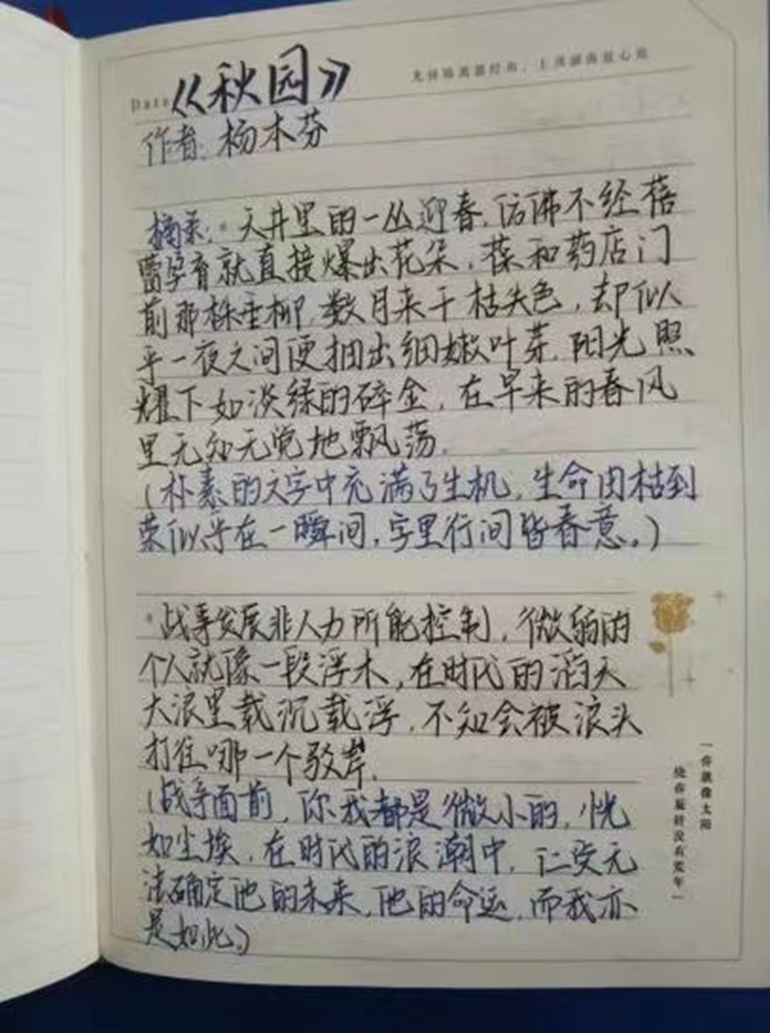 Date
《秋园》
作者: 杨木芬
摘录: 天井里的一丛迎春,仿佛不经蓓
蕾孕育就直接爆出花朵,葆和药店门
前那株垂柳,数月来干枯失色,却似
乎一夜之间便抽出细嫩叶芽,阳光照
耀下如淡绿的碎金,在早来的春风
里无知无觉地飘荡.
(朴素的文字中充满了生机,生命由枯到
荣似乎在一瞬间,字里行间皆春意。)
战争发展非人力所能控制,微弱的
个人就像一段浮木,在时代的滔天
大浪里载沉载浮,不知会被浪头
打往哪一个驳岸.
(战争面前,你我都是微小的,恍
如尘埃,在时代的浪潮中,仁受无
法确定他的未来,他的命运,而我亦
是如此。)
你就像太阳